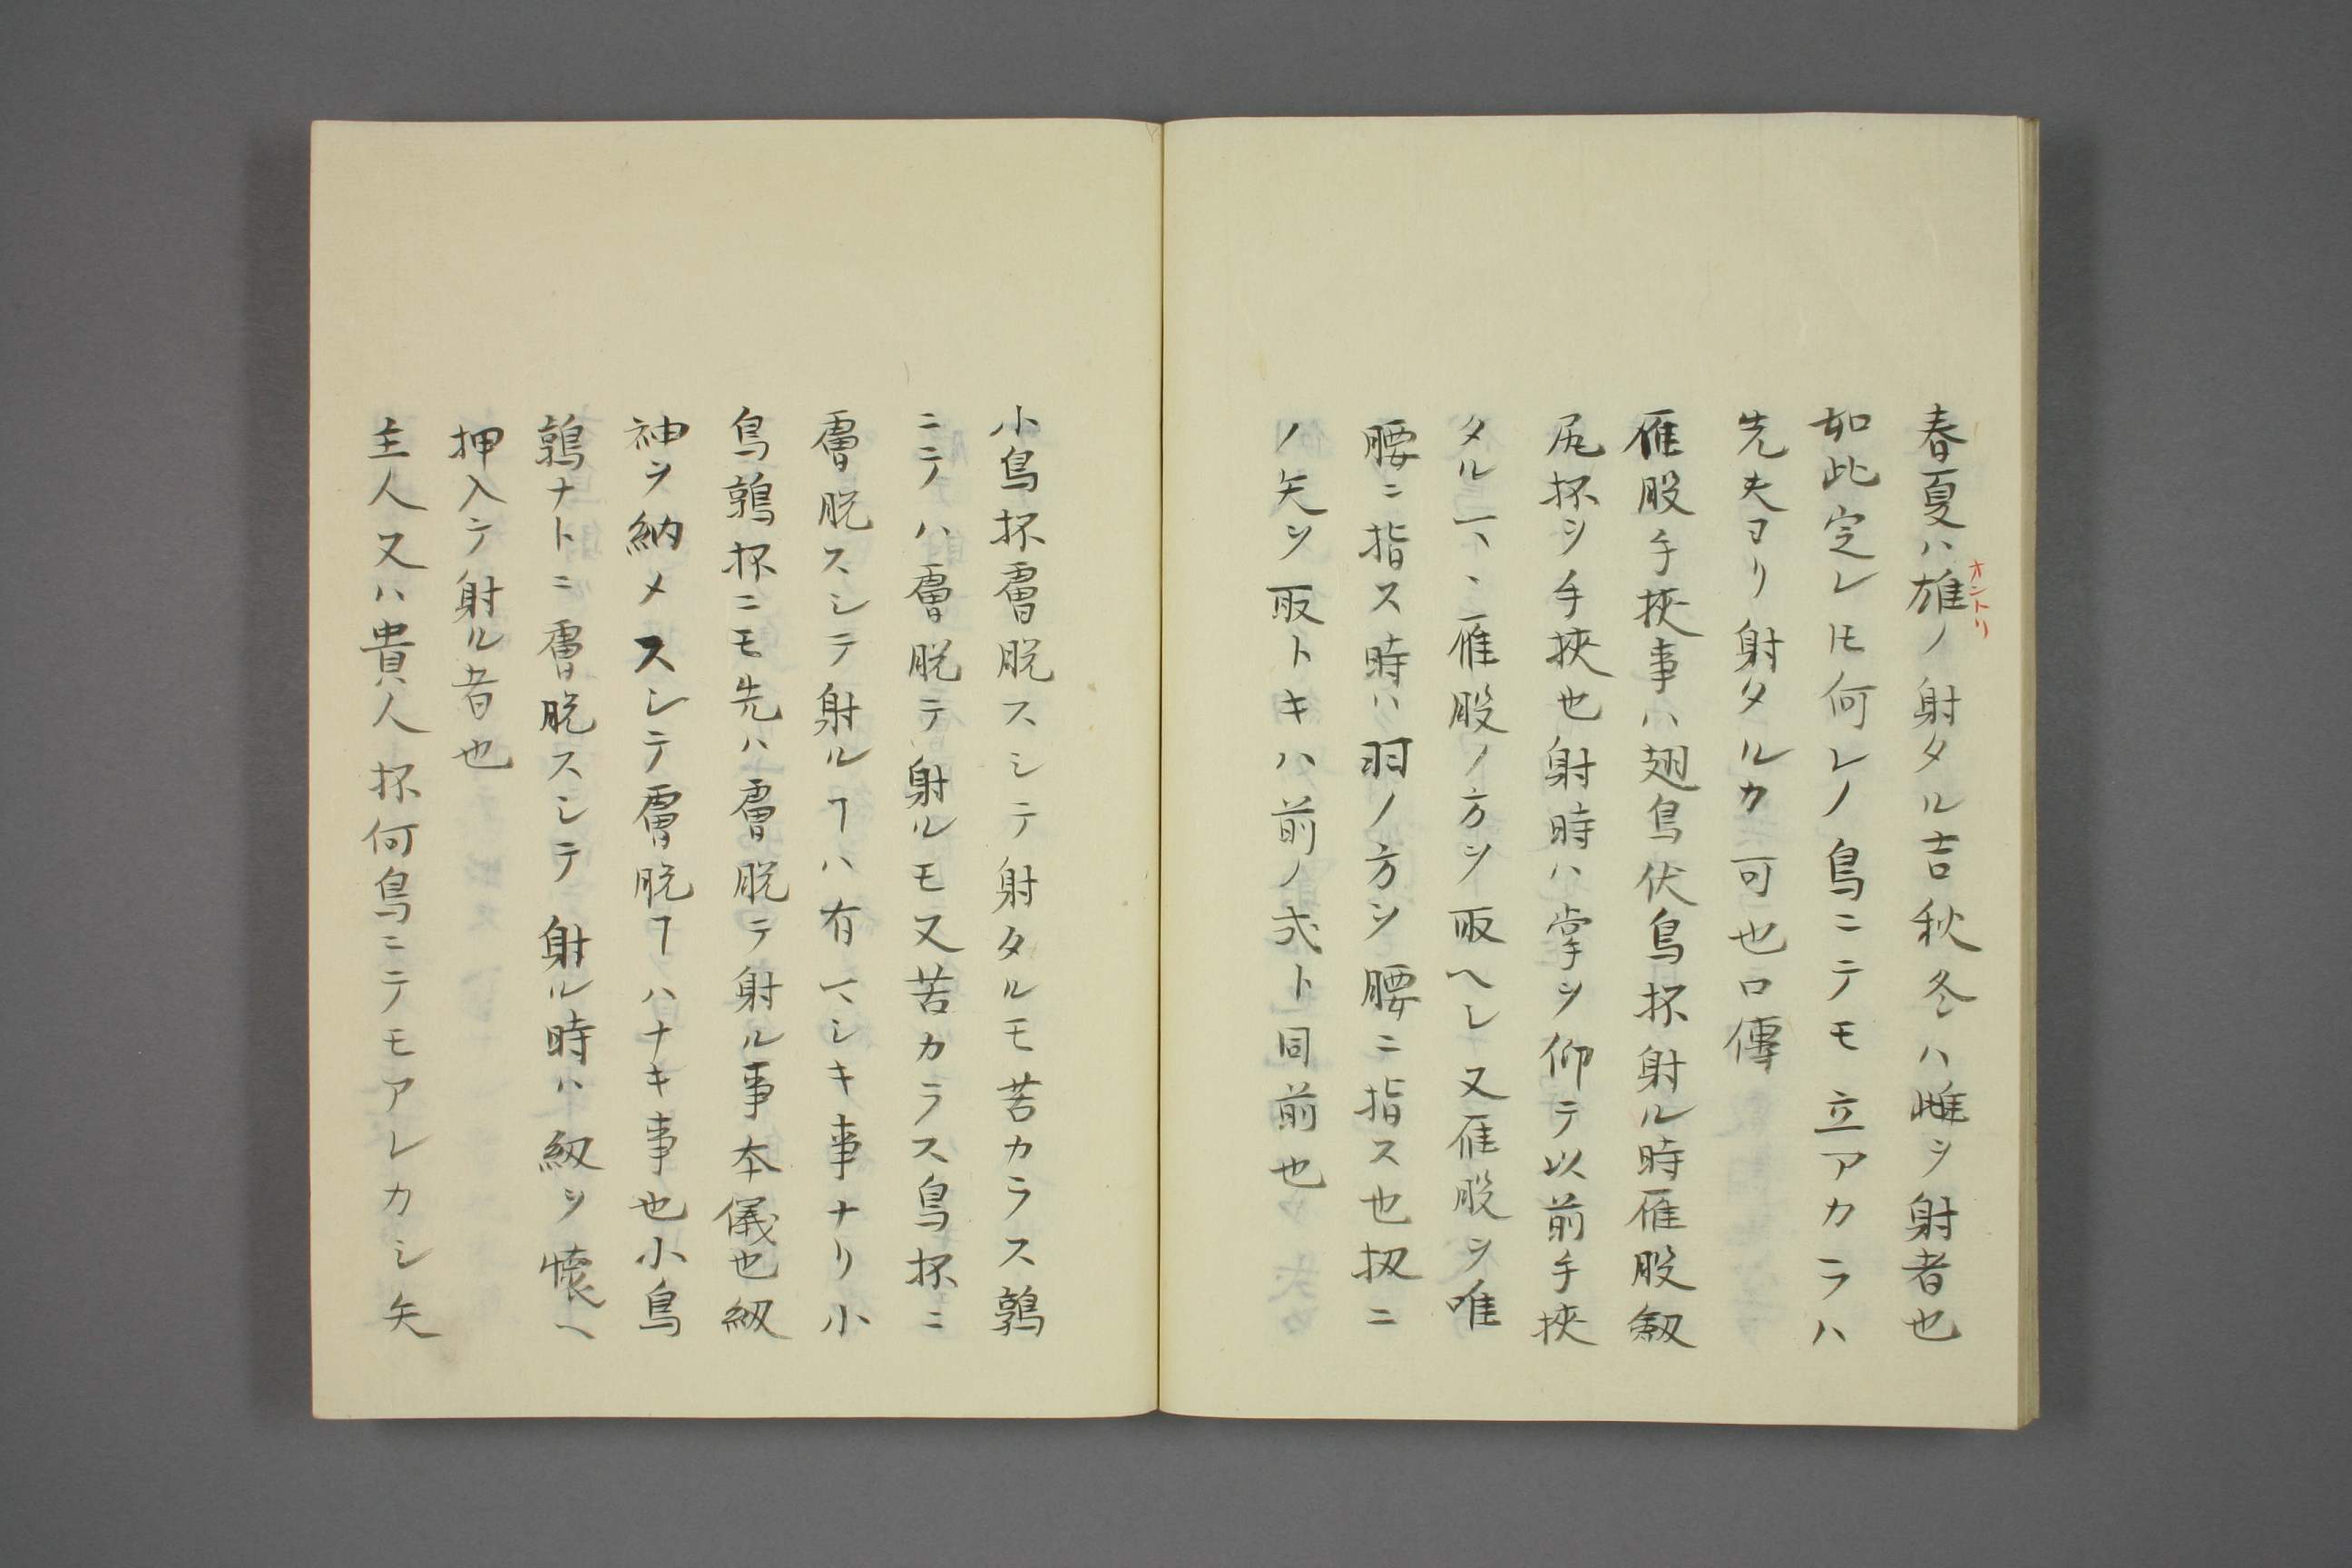 春夏ハ雄ノ射タル吉秋冬ハ雌ヲ射者也
オントリ
如此定レ𪜈何レノ鳥ニテモ立アカラハ
先夫ヨリ射タルカ可也口傳
雁股手挾事ハ翅鳥伏鳥抔射ル時雁股劔
尻抔ヲ手挾也射時ハ掌ヲ仰テ以前手挾
タルマヽ雁股ノ方ヲ取ヘシ又雁股ヲ唯
腰ニ指ス時ハ羽ノ方ヲ腰ニ指ス也扨ニ
ノ矢ヲ取トキハ前ノ式ト同前也
小鳥抔膚脱スシテ射タルモ苦カラス鶉
ニテハ膚脱テ射ルモ又苦カラス鳥抔ニ
膚脱スシテ射ルヿハ有マシキ事ナリ小
鳥鶉抔ニモ先ハ膚脱テ射ル事本儀也級
神ヲ納メスシテ膚脱ヿハナキ事也小鳥
鶉ナトニ膚脱スシテ射ル時ハ級ヲ懐ヘ
押入テ射ル者也
主人又ハ貴人抔何鳥ニテモアレカシ矢